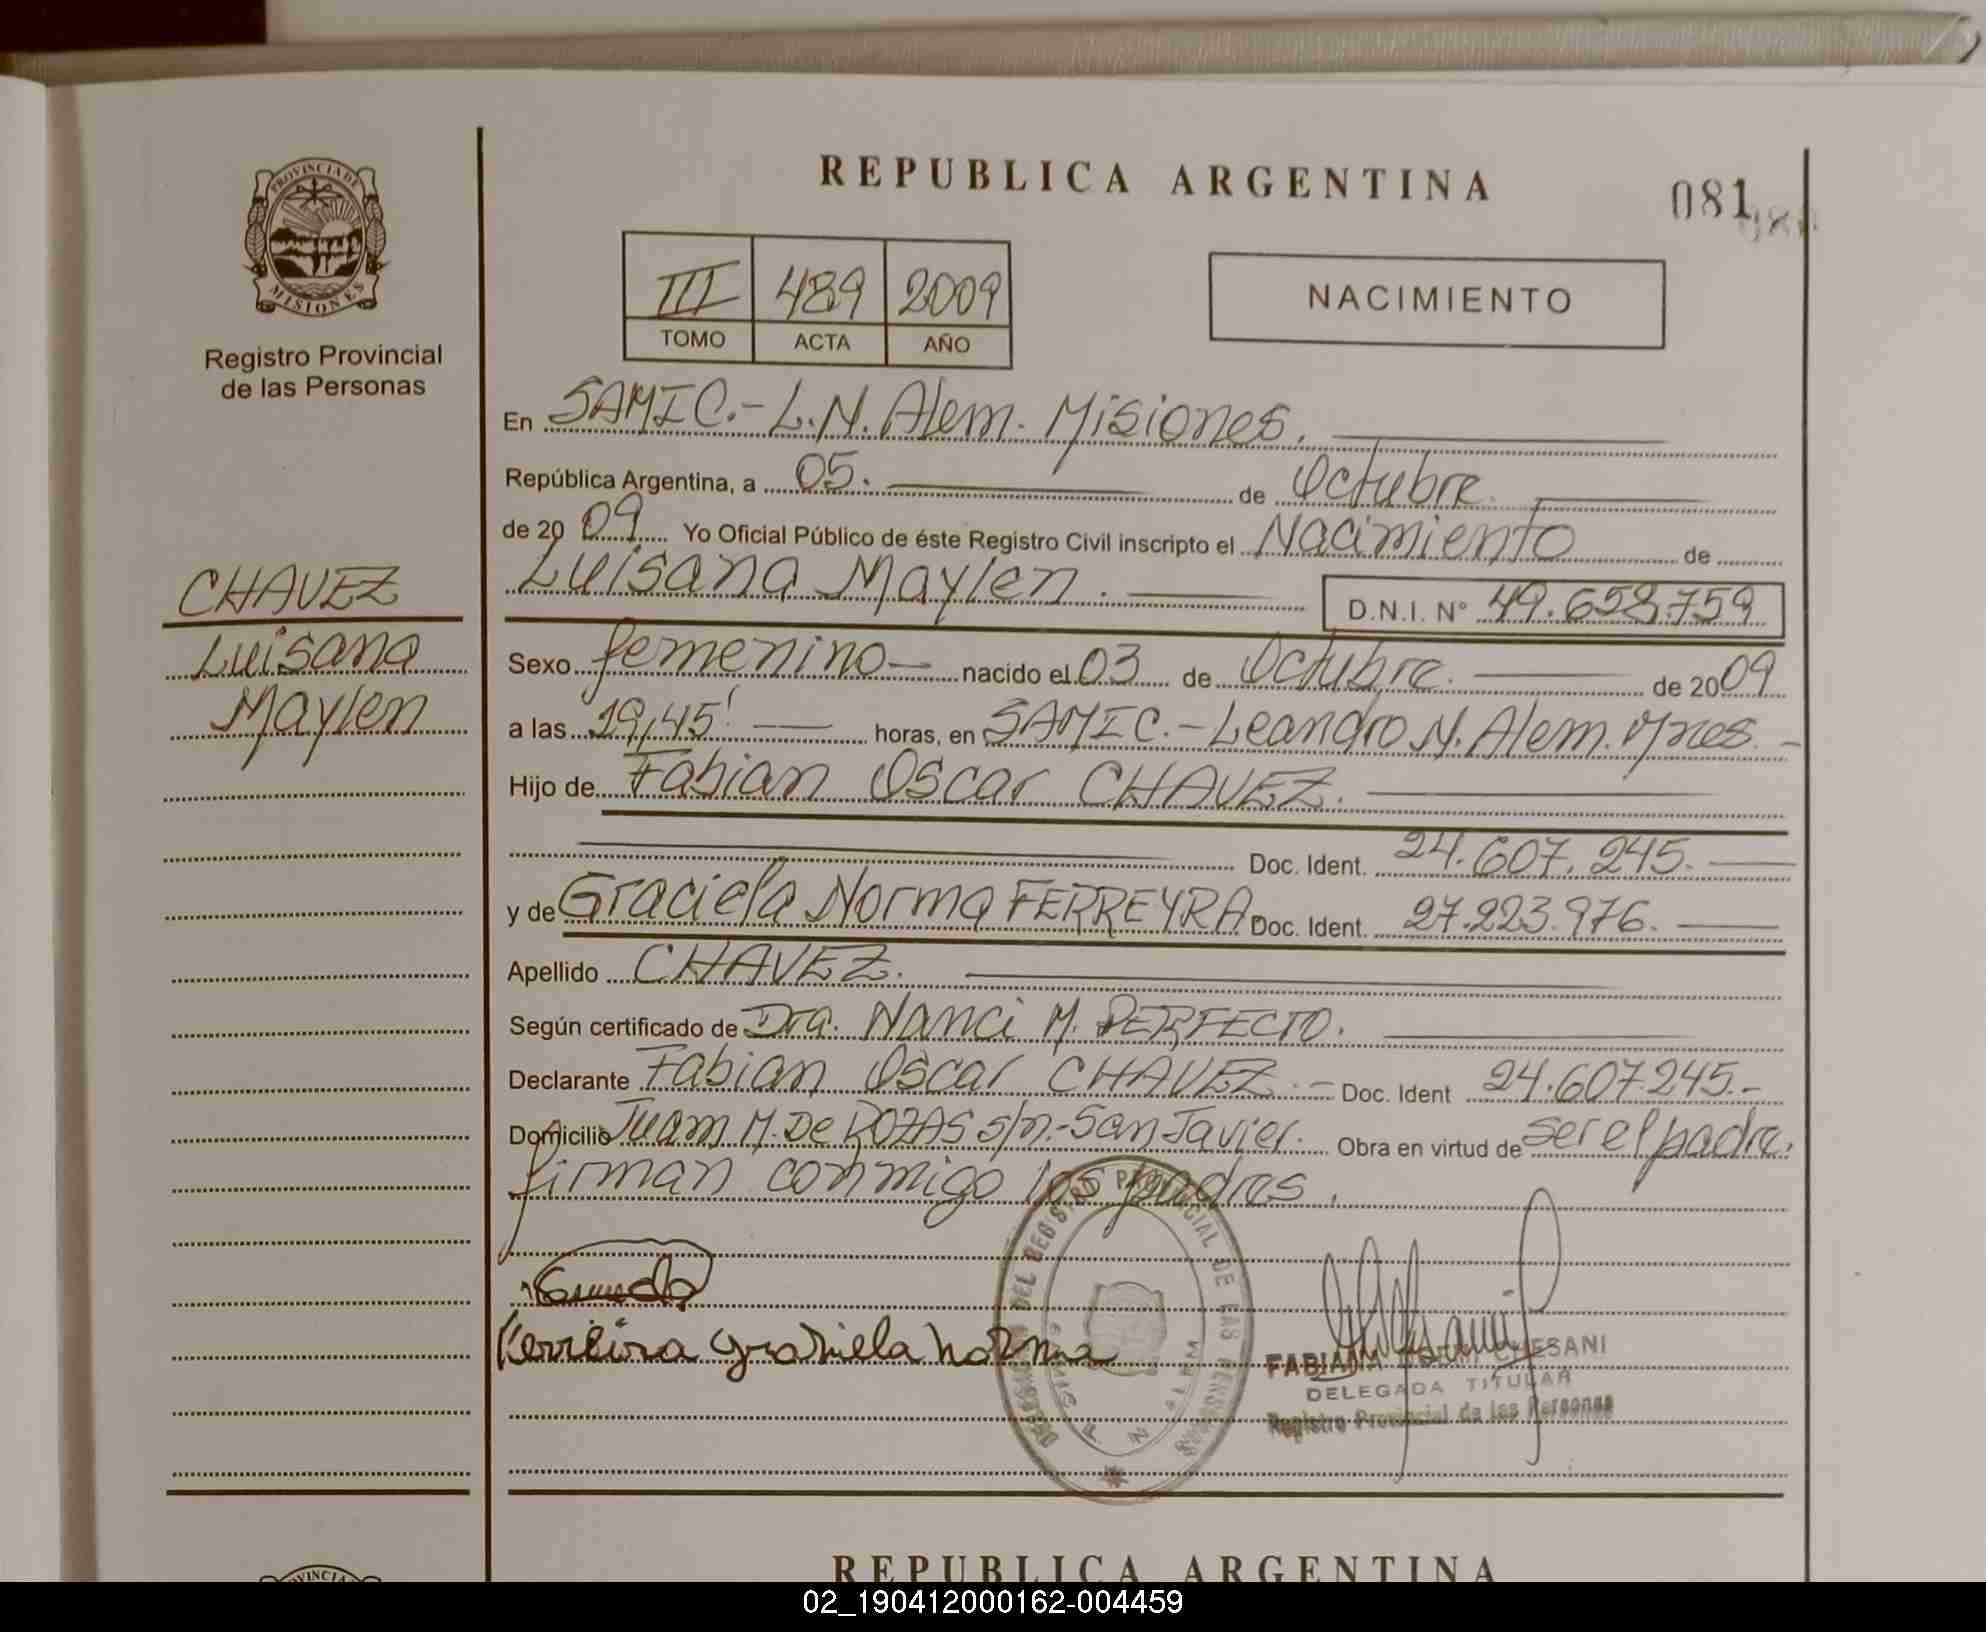 PROVINCIA DE
MISIONES
Registro Provincial
de las Personas
CHAVEZ
Luisana
Maylen
REPUBLICA ARGENTINA
081
III 489 2009
TOMO ACTA AÑO
NACIMIENTO
En SAMIC.- L.N. Alem. Misiones.
República Argentina, a 05. de Octubre.
de 2009 Yo Oficial Público de éste Registro Civil inscripto el Nacimiento de
Luisana Maylen. D.N.I. N° 49.658.759
Sexo femenino nacido el 03 de Octubre. de 2009
a las 19,45' horas, en SAMIC.- Leandro N. Alem. Mnes.-
Hijo de Fabian Oscar CHAVEZ.
Doc. Ident. 24.607.245.
y de Graciela Norma FERREYRA Doc. Ident. 27.223.976.
Apellido CHAVEZ.
Según certificado de Dra. Nanci M. PERFECTO.
Declarante Fabian Oscar CHAVEZ.- Doc. Ident 24.607.245.-
Domicilio Juam M. De ROZAS s/n.- San Javier. Obra en virtud de ser el padre.
firman conmigo los padres.
DEL REGISTRO PROVINCIAL DE LAS PERSONAS
Norma
FABIANA CHESANI
DELEGADA TITULAR
Registro Provincial de las Personas
PROVINCIA
REPUBLICA ARGENTINA
02_190412000162-004459